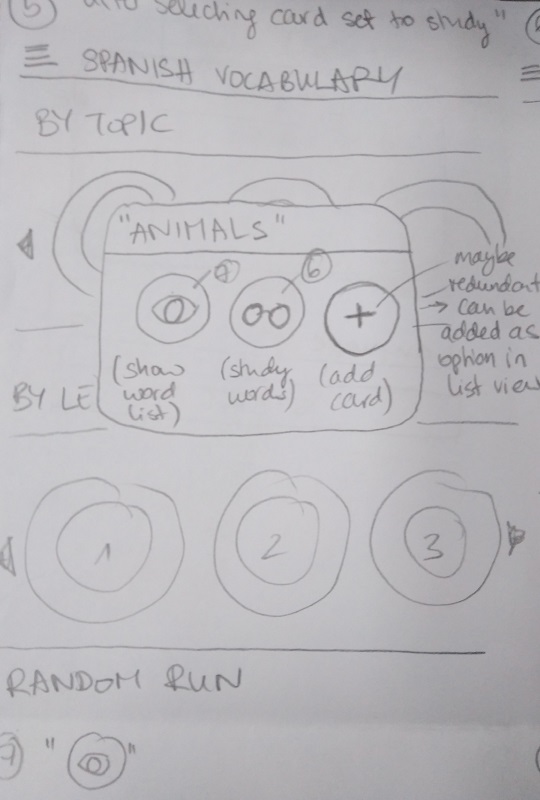 5
selecting card set to study"
SPANISH VOCABULARY
BY TOPIC
"ANIMALS"
7
6
+
(show word list)
(study words)
(add card)
maybe
redundant
→ can be
added as
option in
list view
BY LE
1
2
3
RANDOM RUN
7 " "